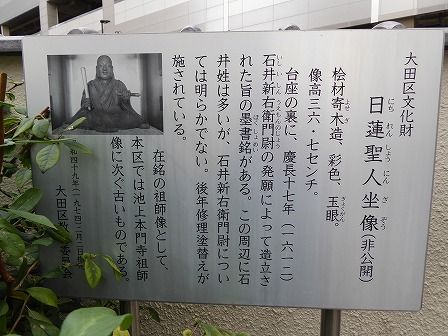 大田区文化財
日蓮聖人坐像(非公開)
にち れん しょう にん ざ ぞう
桧材寄木造、彩色、玉眼。
像高三六・七センチ。
台座の裏に、慶長十七年(一六一二)
石井新右衛門尉の発願によって造立さ
れた旨の墨書銘がある。この周辺に石
井姓は多いが、石井新右衛門尉につい
ては明らかでない。後年修理塗替えが
施されている。
在銘の祖師像として、
本区では池上本門寺祖師
像に次ぐ古いものである。
和四十九年(一九七四)二月二日
大田区教 委員会